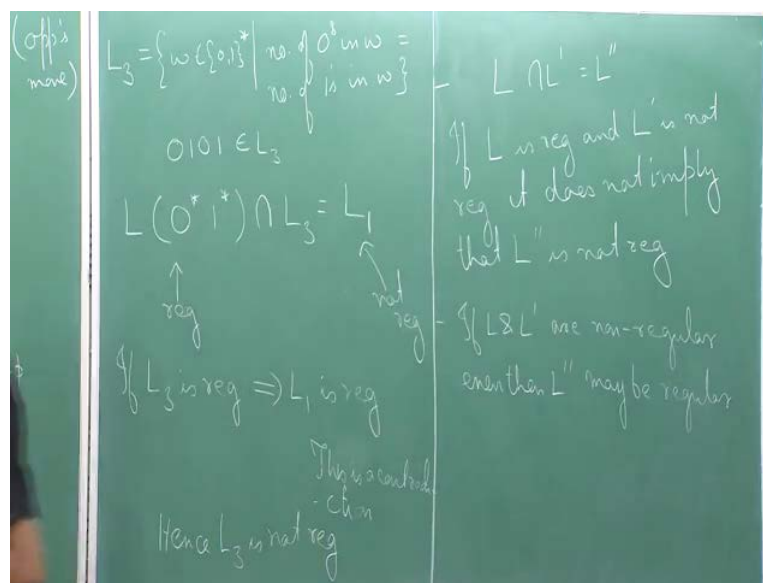 (opp's
move)
L₃ = {w ∈ {0,1}* | no. of 0s in w =
no. of 1s in w}
0101 ∈ L₃
L(0*1*) ∩ L₃ = L₁
reg
not
reg
If L₃ is reg ⟹ L₁ is reg
This is a contradi
-ction
Hence L₃ is not reg
- L ∩ L' = L''
If L is reg and L' is not
reg it does not imply
that L'' is not reg
- If L & L' are non-regular
even then L'' may be regular